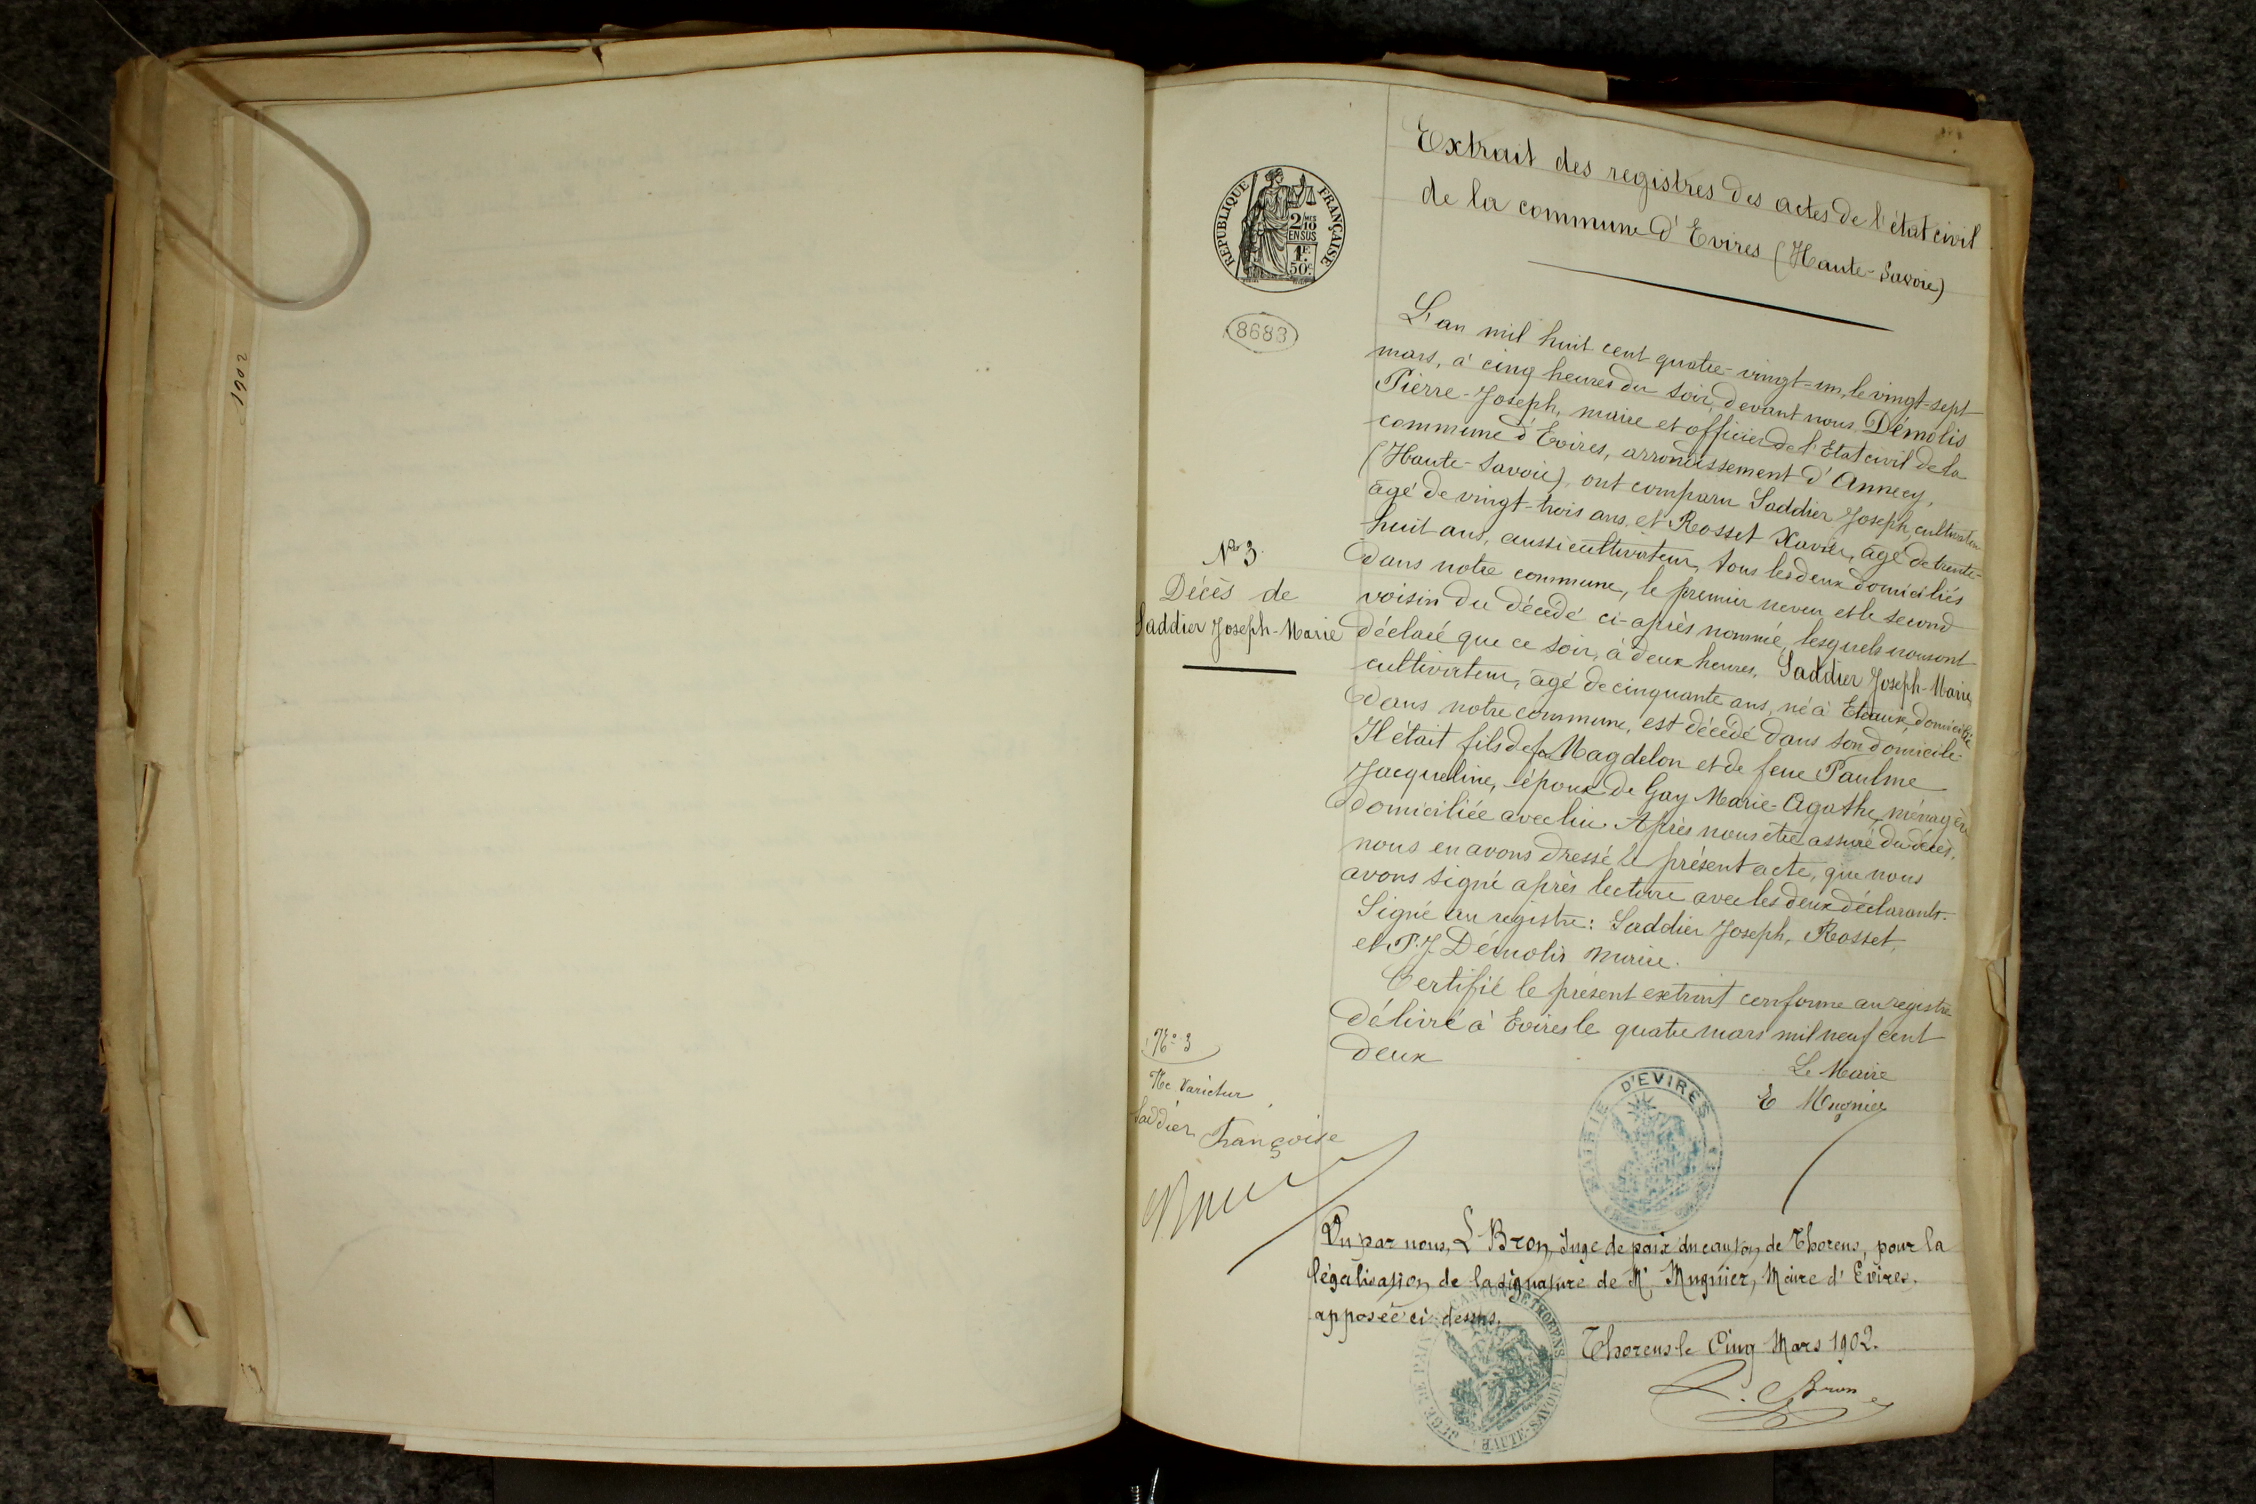 1902
RÉPUBLIQUE FRANÇAISE
2/10 MES
EN SUS
1F.
50c
8683
Extrait des registres des actes de l'état civil
de la commune d'Evires (Haute-Savoie)
L'an mil huit cent quatre-vingt-un, le vingt-sept
mars, à cinq heures du soir, devant nous Démolis
Pierre-Joseph, maire et officier de l'Etat civil de la
commune d'Evires, arrondissement d'Annecy,
(Haute-Savoie), ont comparu Saddier Joseph, cultivateur
âgé de vingt-trois ans, et Rosset Xavier, âgé de trente-
huit ans, aussi cultivateur, tous les deux domiciliés
dans notre commune, le premier neveu et le second
voisin du décédé ci-après nommé, lesquels nous ont
déclaré que ce soir, à deux heures, Saddier Joseph-Marie,
cultivateur, âgé de cinquante ans, né à Eteaux domicilié
dans notre commune, est décédé dans son domicile.
Il était fils de fu Magdelon et de feue Paulme
Jacqueline, époux de Gay Marie-Agathe, ménagère
domiciliée avec lui. Après nous être assuré du décès,
nous en avons dressé le présent acte, que nous
avons signé après lecture avec les deux déclarants.
Signé au registre: Saddier Joseph, Rosset,
et P.J. Démolis maire.
Certifié le présent extrait conforme au registre
délivré à Evires le quatre mars mil neuf cent
deux
Le Maire
E Mugnier
MAIRIE D'EVIRES
No 3.
Décès de
Saddier Joseph-Marie
No 3
Ne Varietur
Saddier Françoise
Vu par nous, L. Bron, Juge de paix du canton de Thorens, pour la
légalisation de la signature de Mr Mugnier, Maire d'Evires,
apposée ci-dessus.
Thorens le Cinq Mars 1902.
L. Bron
JUGE DE PAIX CANTON DE THORENS
(HAUTE-SAVOIE)